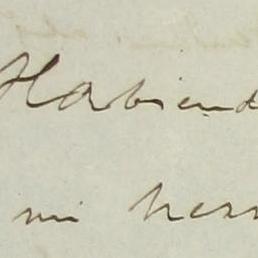 Habiend
mi herm